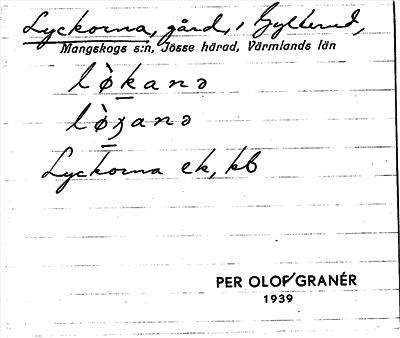 Lyckorna, gård, i Gylterud,
Mangskogs s:n, Jösse härad, Värmlands län
lø̀kanə
lø̀ʒanə
Lyckorna ek, kb
PER OLOF GRANÉR
1939